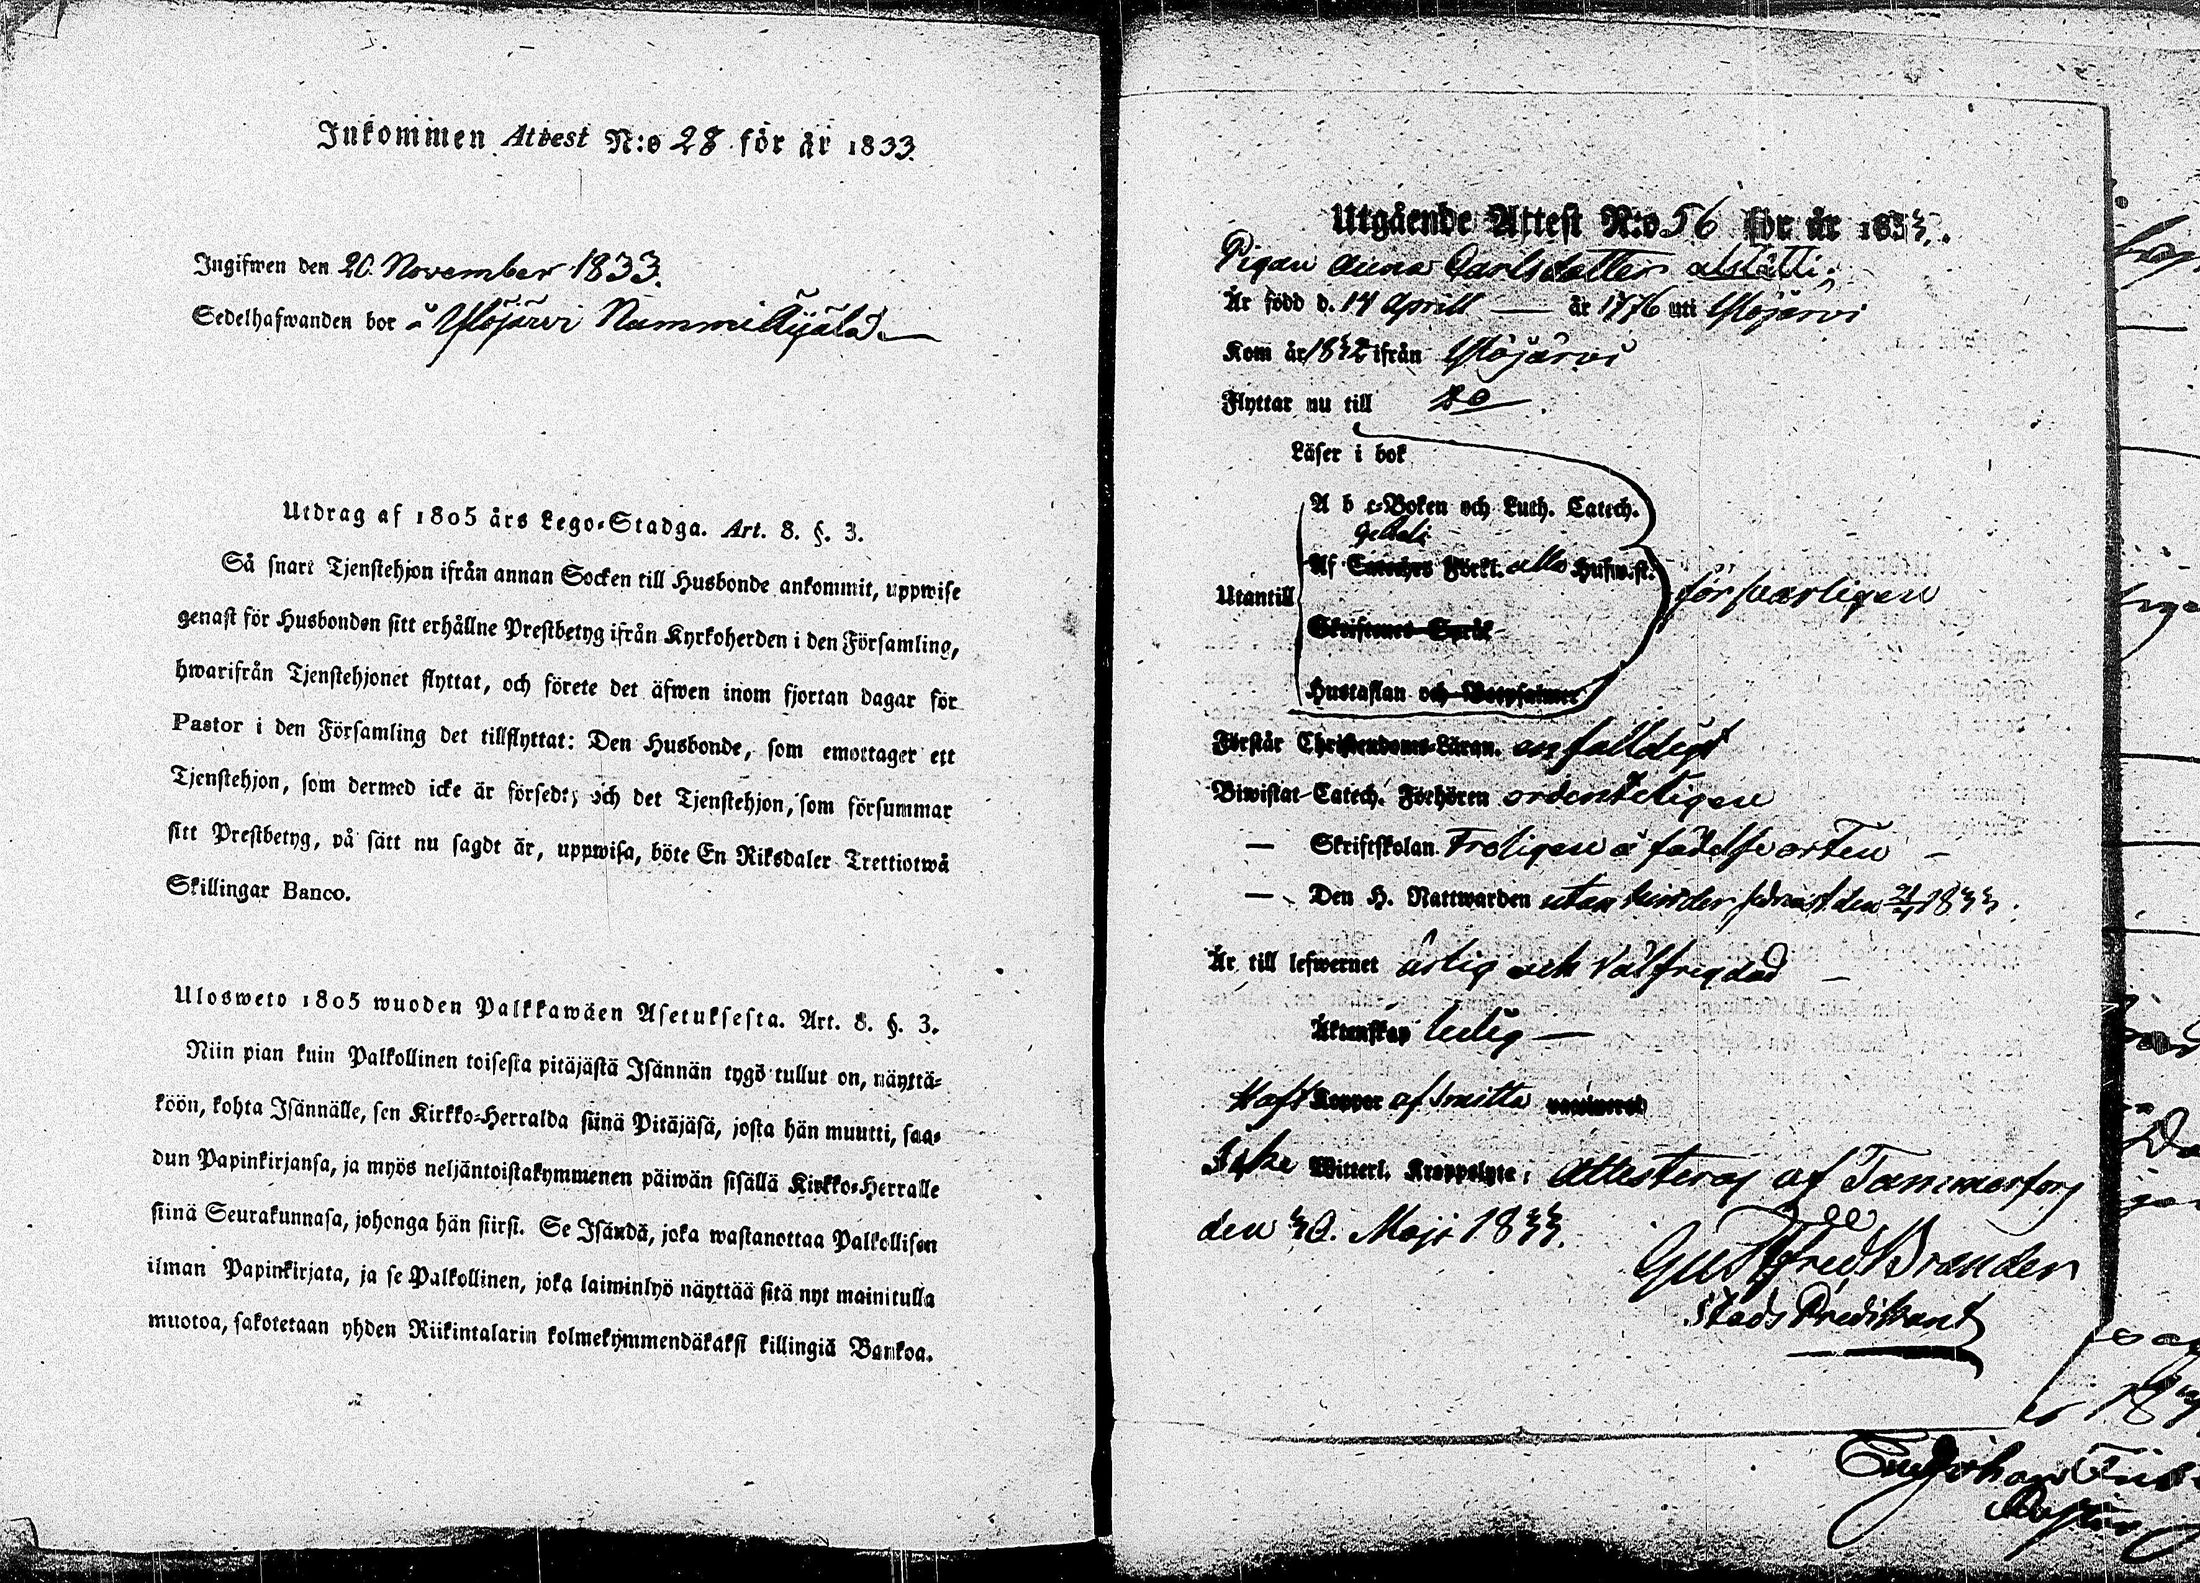 Inkommen Attest N:o 28 för år 1833.
Ingifwen den 20. November 1833.
Sedelhafwanden bor å Ylöjärvi
Utdrag af 1805 års Lego-Stadga. Art. 8. §. 3.
Så snart Tjenstehjon ifrån annan Socken till Husbonde ankommit, uppwise
genast för Husbonden sitt erhållne Prestbetyg ifrån Kyrkoherden i den Församling,
hwarifrån Tjenstehjonet flyttat, och förete det äfwen inom fjortan dagar för
Pastor i den Församling det tillflyttat: Den Husbonde, som emottager ett
Tjenstehjon, som dermed icke är försedt, och det Tjenstehjon, som försummar
sitt Prestbetyg, på sätt nu sagdt är, uppwisa, böte En Riksdaler Trettiotwå
Skillingar Banco.
Ulosweto 1805 wuoden Palkkawäen Asetuksesta. Art. 8. §. 3.
Niin pian kuin Palkollinen toisesta pitäjästä Isännän tygö tullut on, näyttä-
köön, kohta Isännälle, sen Kirkko-Herralda siinä Pitäjäsä, josta hän muutti, saa-
dun Papinkirjansa, ja myös neljäntoistakymmenen päiwän sisällä Kirkko-Herralle
siinä Seurakunnasa, johonga hän siirsi. Se Isändä, joka wastanottaa Palkollisen
ilman Papinkirjata, ja se Palkollinen, joka laiminlyö näyttää sitä nyt mainitulla
muotoa, sakotetaan yhden Riikintalarin kolmekymmendäkaksi killingiä Bankoa.
Utgående Attest N:o 56 för år 1833.
Pigan Anna Carlsdotter
Är född d. 14 Aprill — år 1776 uti Ylöjärvi
Kom år 1832 ifrån Ylöjärvi
Flyttar nu till Do
Läser i bok
A b c-Boken och Luth. Catech.
Af Catechis Förkl. alla Husw.st.
Utantill
försvarligen
Skriftenes Språk
Hustaflan och Botpsalmer
Förstår Christendoms-Läran. enfalldigt
Biwistat Catech. Förhören ordenteligen
— Skriftskolan Troligen å födelseorten —
— Den H. Nattwarden utan hinder sednast den 21/4 1833.
Är till lefwernet ärlig och välfrejdad —
Äktenskap ledig —
Haft Koppor af smitta vaccinerad
Icke Witterl. Kroppslyte; Attesteras af Tammerfors
den 30. Maji 1833.
Gust Fred Brander
Stads Predikant